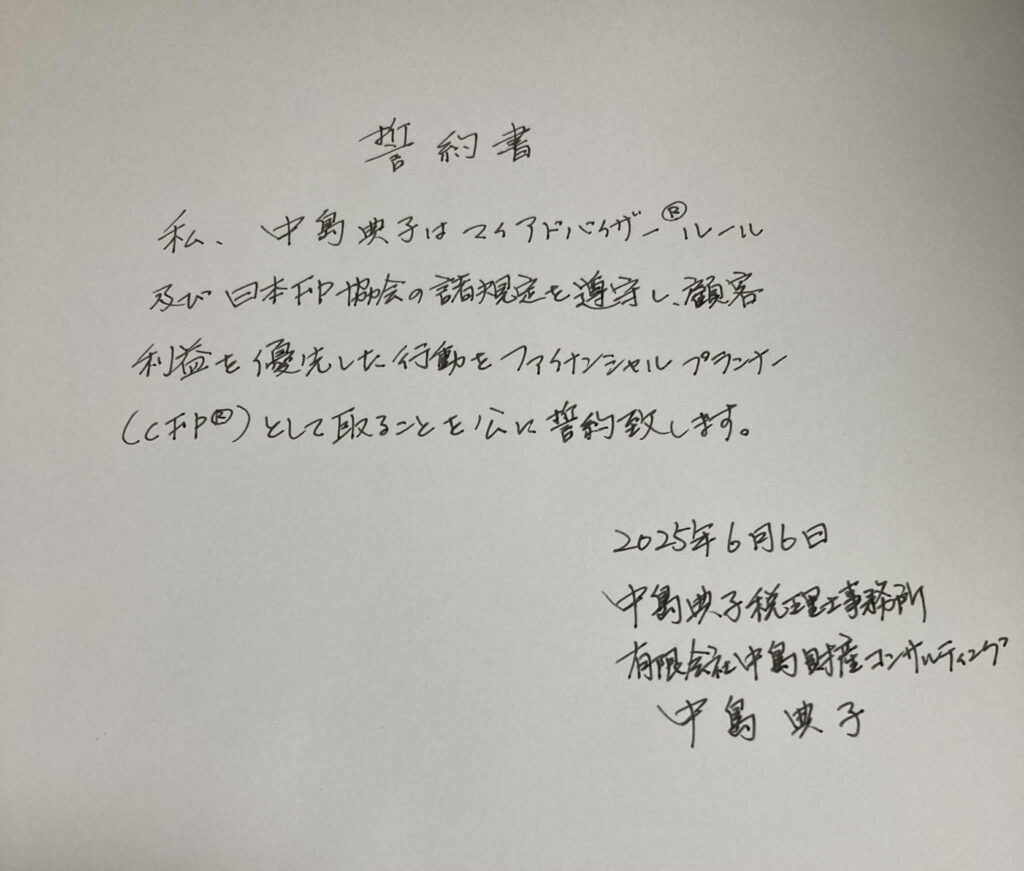 誓約書
私、中島典子はマイアドバイザー®ルール
及び日本FP協会の諸規定を遵守し、顧客
利益を優先した行動をファイナンシャルプランナー
(CFP®)として取ることを公に誓約致します。
2025年6月6日
中島典子税理士事務所
有限会社中島財産コンサルティング
中島典子